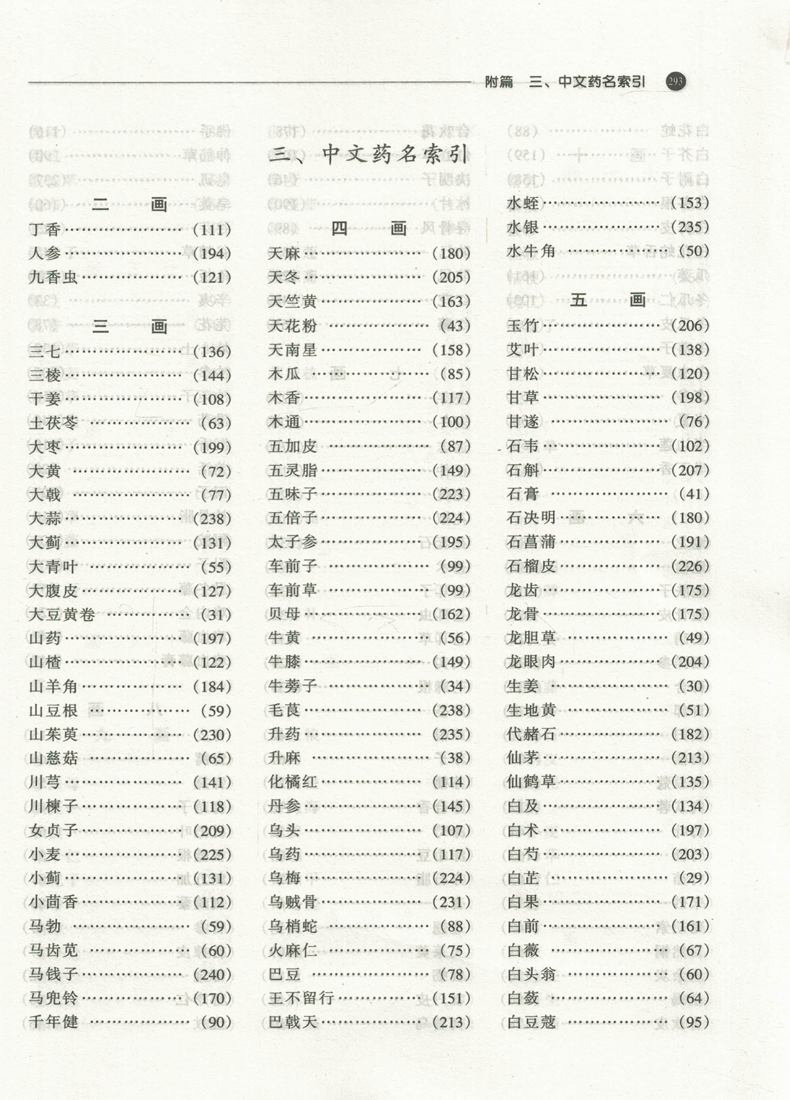 附篇 三、中文药名索引 293
三、中文药名索引
二 画
丁香…………………(111)
人参…………………(194)
九香虫………………(121)
三 画
三七…………………(136)
三棱…………………(144)
干姜…………………(108)
土茯苓………………(63)
大枣…………………(199)
大黄…………………(72)
大戟…………………(77)
大蒜…………………(238)
大蓟…………………(131)
大青叶………………(55)
大腹皮………………(127)
大豆黄卷……………(31)
山药…………………(197)
山楂…………………(122)
山羊角………………(184)
山豆根………………(59)
山茱萸………………(230)
山慈菇………………(65)
川芎…………………(141)
川楝子………………(118)
女贞子………………(209)
小麦…………………(225)
小蓟…………………(131)
小茴香………………(112)
马勃…………………(59)
马齿苋………………(60)
马钱子………………(240)
马兜铃………………(170)
千年健………………(90)
四 画
天麻…………………(180)
天冬…………………(205)
天竺黄………………(163)
天花粉………………(43)
天南星………………(158)
木瓜…………………(85)
木香…………………(117)
木通…………………(100)
五加皮………………(87)
五灵脂………………(149)
五味子………………(223)
五倍子………………(224)
太子参………………(195)
车前子………………(99)
车前草………………(99)
贝母…………………(162)
牛黄…………………(56)
牛膝…………………(149)
牛蒡子………………(34)
毛茛…………………(238)
升药…………………(235)
升麻…………………(38)
化橘红………………(114)
丹参…………………(145)
乌头…………………(107)
乌药…………………(117)
乌梅…………………(224)
乌贼骨………………(231)
乌梢蛇………………(88)
火麻仁………………(75)
巴豆…………………(78)
王不留行……………(151)
巴戟天………………(213)
水蛭…………………(153)
水银…………………(235)
水牛角………………(50)
五 画
玉竹…………………(206)
艾叶…………………(138)
甘松…………………(120)
甘草…………………(198)
甘遂…………………(76)
石韦…………………(102)
石斛…………………(207)
石膏…………………(41)
石决明………………(180)
石菖蒲………………(191)
石榴皮………………(226)
龙齿…………………(175)
龙骨…………………(175)
龙胆草………………(49)
龙眼肉………………(204)
生姜…………………(30)
生地黄………………(51)
代赭石………………(182)
仙茅…………………(213)
仙鹤草………………(135)
白及…………………(134)
白术…………………(197)
白芍…………………(203)
白芷…………………(29)
白果…………………(171)
白前…………………(161)
白薇…………………(67)
白头翁………………(60)
白蔹…………………(64)
白豆蔻………………(95)